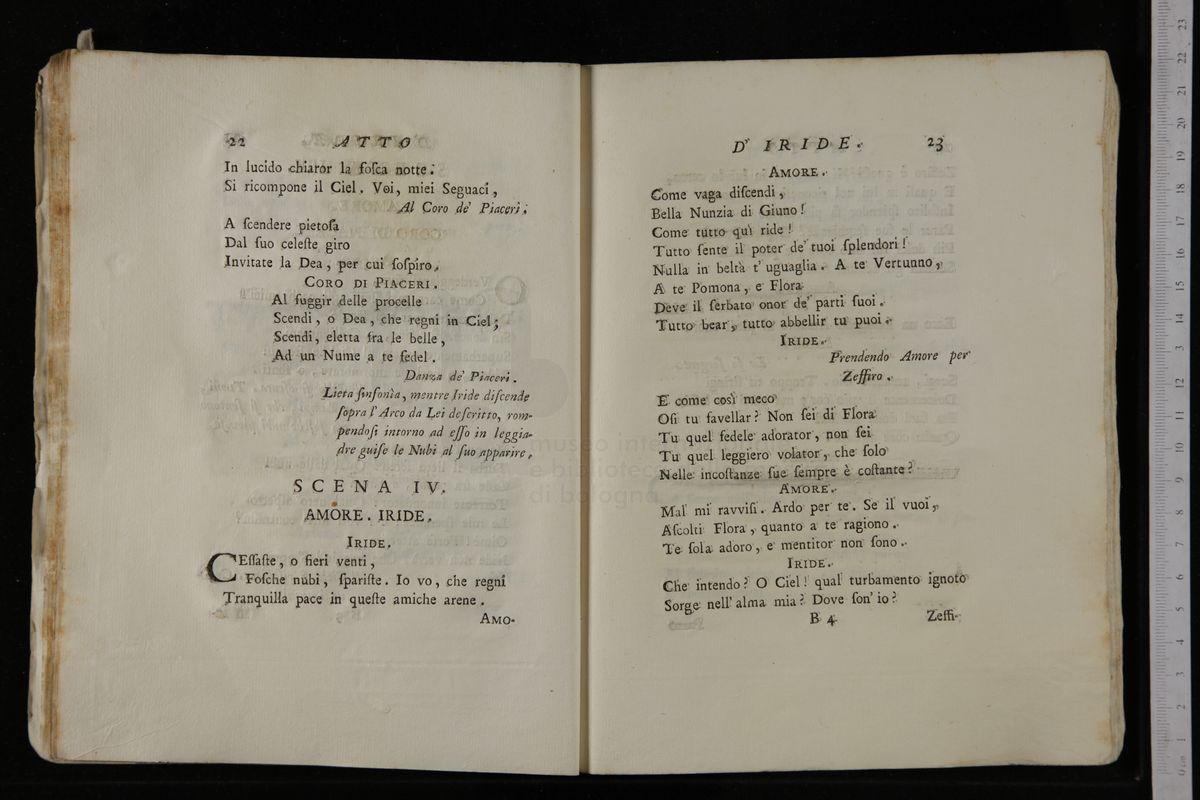 22 ATTO
In lucido chiaror la foſca notte.
Si ricompone il Ciel. Voi, miei Seguaci,
Al Coro de' Piaceri.
A ſcendere pietoſa
Dal ſuo celeſte giro
Invitate la Dea, per cui ſoſpiro.
CORO DI PIACERI.
Al fuggir delle procelle
Scendi, o Dea, che regni in Ciel;
Scendi, eletta fra le belle,
Ad un Nume a te fedel.
Danza de' Piaceri.
Lieta ſinfonìa, mentre Iride diſcende
ſopra l'Arco da Lei deſcritto, rom-
pendoſi intorno ad eſſo in leggia-
dre guiſe le Nubi al ſuo apparire.
SCENA IV.
AMORE. IRIDE.
IRIDE.
CEſſaſte, o fieri venti,
Foſche nubi, ſpariſte. Io vo, che regni
Tranquilla pace in queſte amiche arene.
AMO-
D' IRIDE. 23
AMORE.
Come vaga diſcendi,
Bella Nunzia di Giuno!
Come tutto quì ride!
Tutto ſente il poter de' tuoi ſplendori!
Nulla in beltà t' uguaglia. A te Vertunno,
A te Pomona, e Flora
Deve il ſerbato onor de' parti ſuoi.
Tutto bear, tutto abbellir tu puoi.
IRIDE.
Prendendo Amore per
Zeffiro.
E come così meco
Oſi tu favellar? Non ſei di Flora
Tu quel fedele adorator, non ſei
Tu quel leggiero volator, che ſolo
Nelle incoſtanze ſue ſempre è coſtante?
AMORE.
Mal mi ravviſi. Ardo per te. Se il vuoi,
Aſcolti Flora, quanto a te ragiono.
Te ſola adoro, e mentitor non ſono.
IRIDE.
Che intendo? O Ciel! qual turbamento ignoto
Sorge nell' alma mia? Dove ſon' io?
B 4 Zeffi-